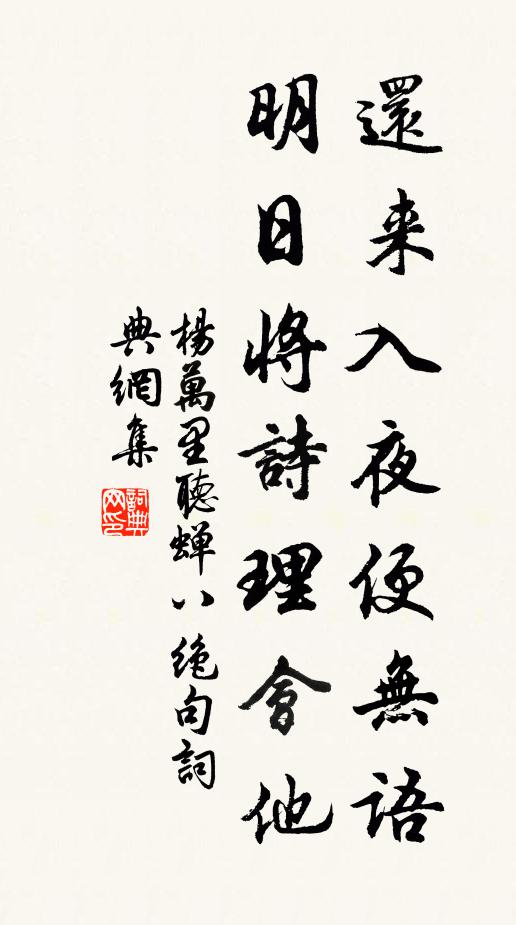 還来入夜便無語
明日將詩理會他
楊萬里聽蝉八绝句詞
典網集
詞典
网印